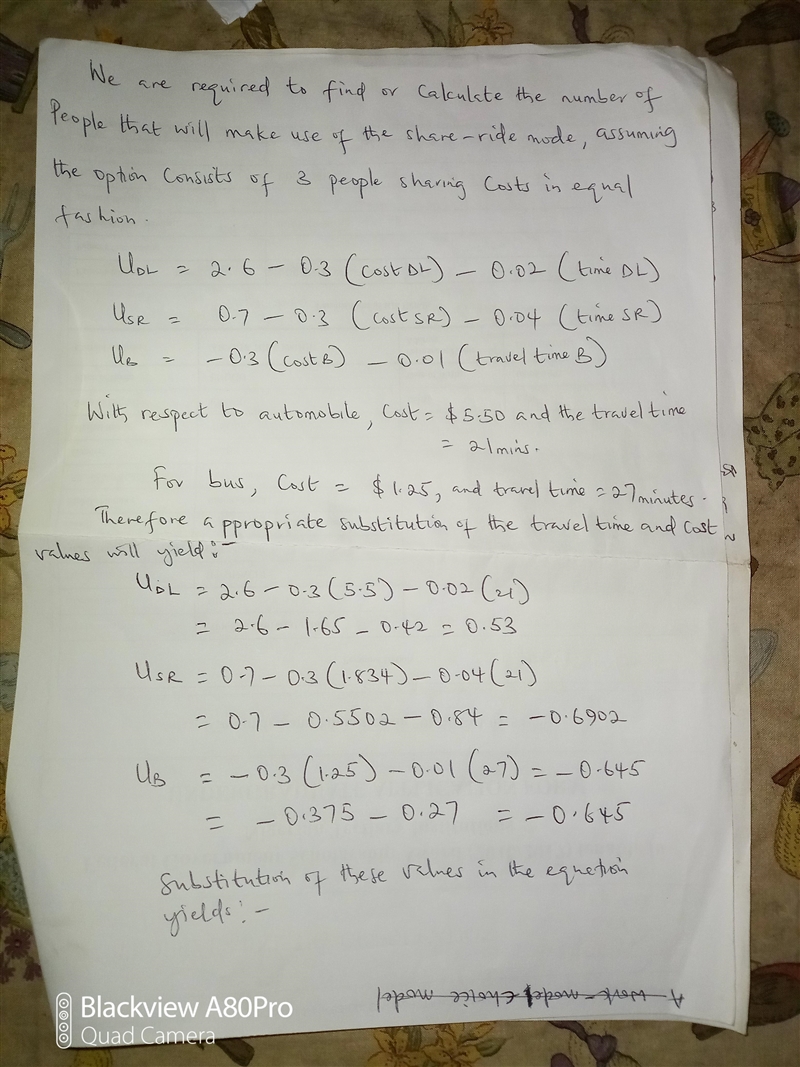 We are required to find or Calculate the number of
People that will make use of the share-ride mode, assuming
the option Consists of 3 people sharing Costs in equal
fashion.
UDL = 2.6 - 0.3 (cost DL) - 0.02 (time DL)
USR = 0.7 - 0.3 (cost SR) - 0.04 (time SR)
UB = -0.3 (cost B) - 0.01 (travel time B)
With respect to automobile, Cost = $5.50 and the travel time
= 21mins.
For bus, Cost = $1.25, and travel time = 27 minutes.
Therefore appropriate substitution of the travel time and cost
values will yield:-
UDL = 2.6 - 0.3 (5.5) - 0.02 (21)
= 2.6 - 1.65 - 0.42 = 0.53
USR = 0.7 - 0.3 (1.834) - 0.04 (21)
= 0.7 - 0.5502 - 0.84 = -0.6902
UB = -0.3 (1.25) - 0.01 (27) = -0.645
= -0.375 - 0.27 = -0.645
Substitution of these values in the equation
yields:-
A work-model choice model
Blackview A80Pro
Quad Camera